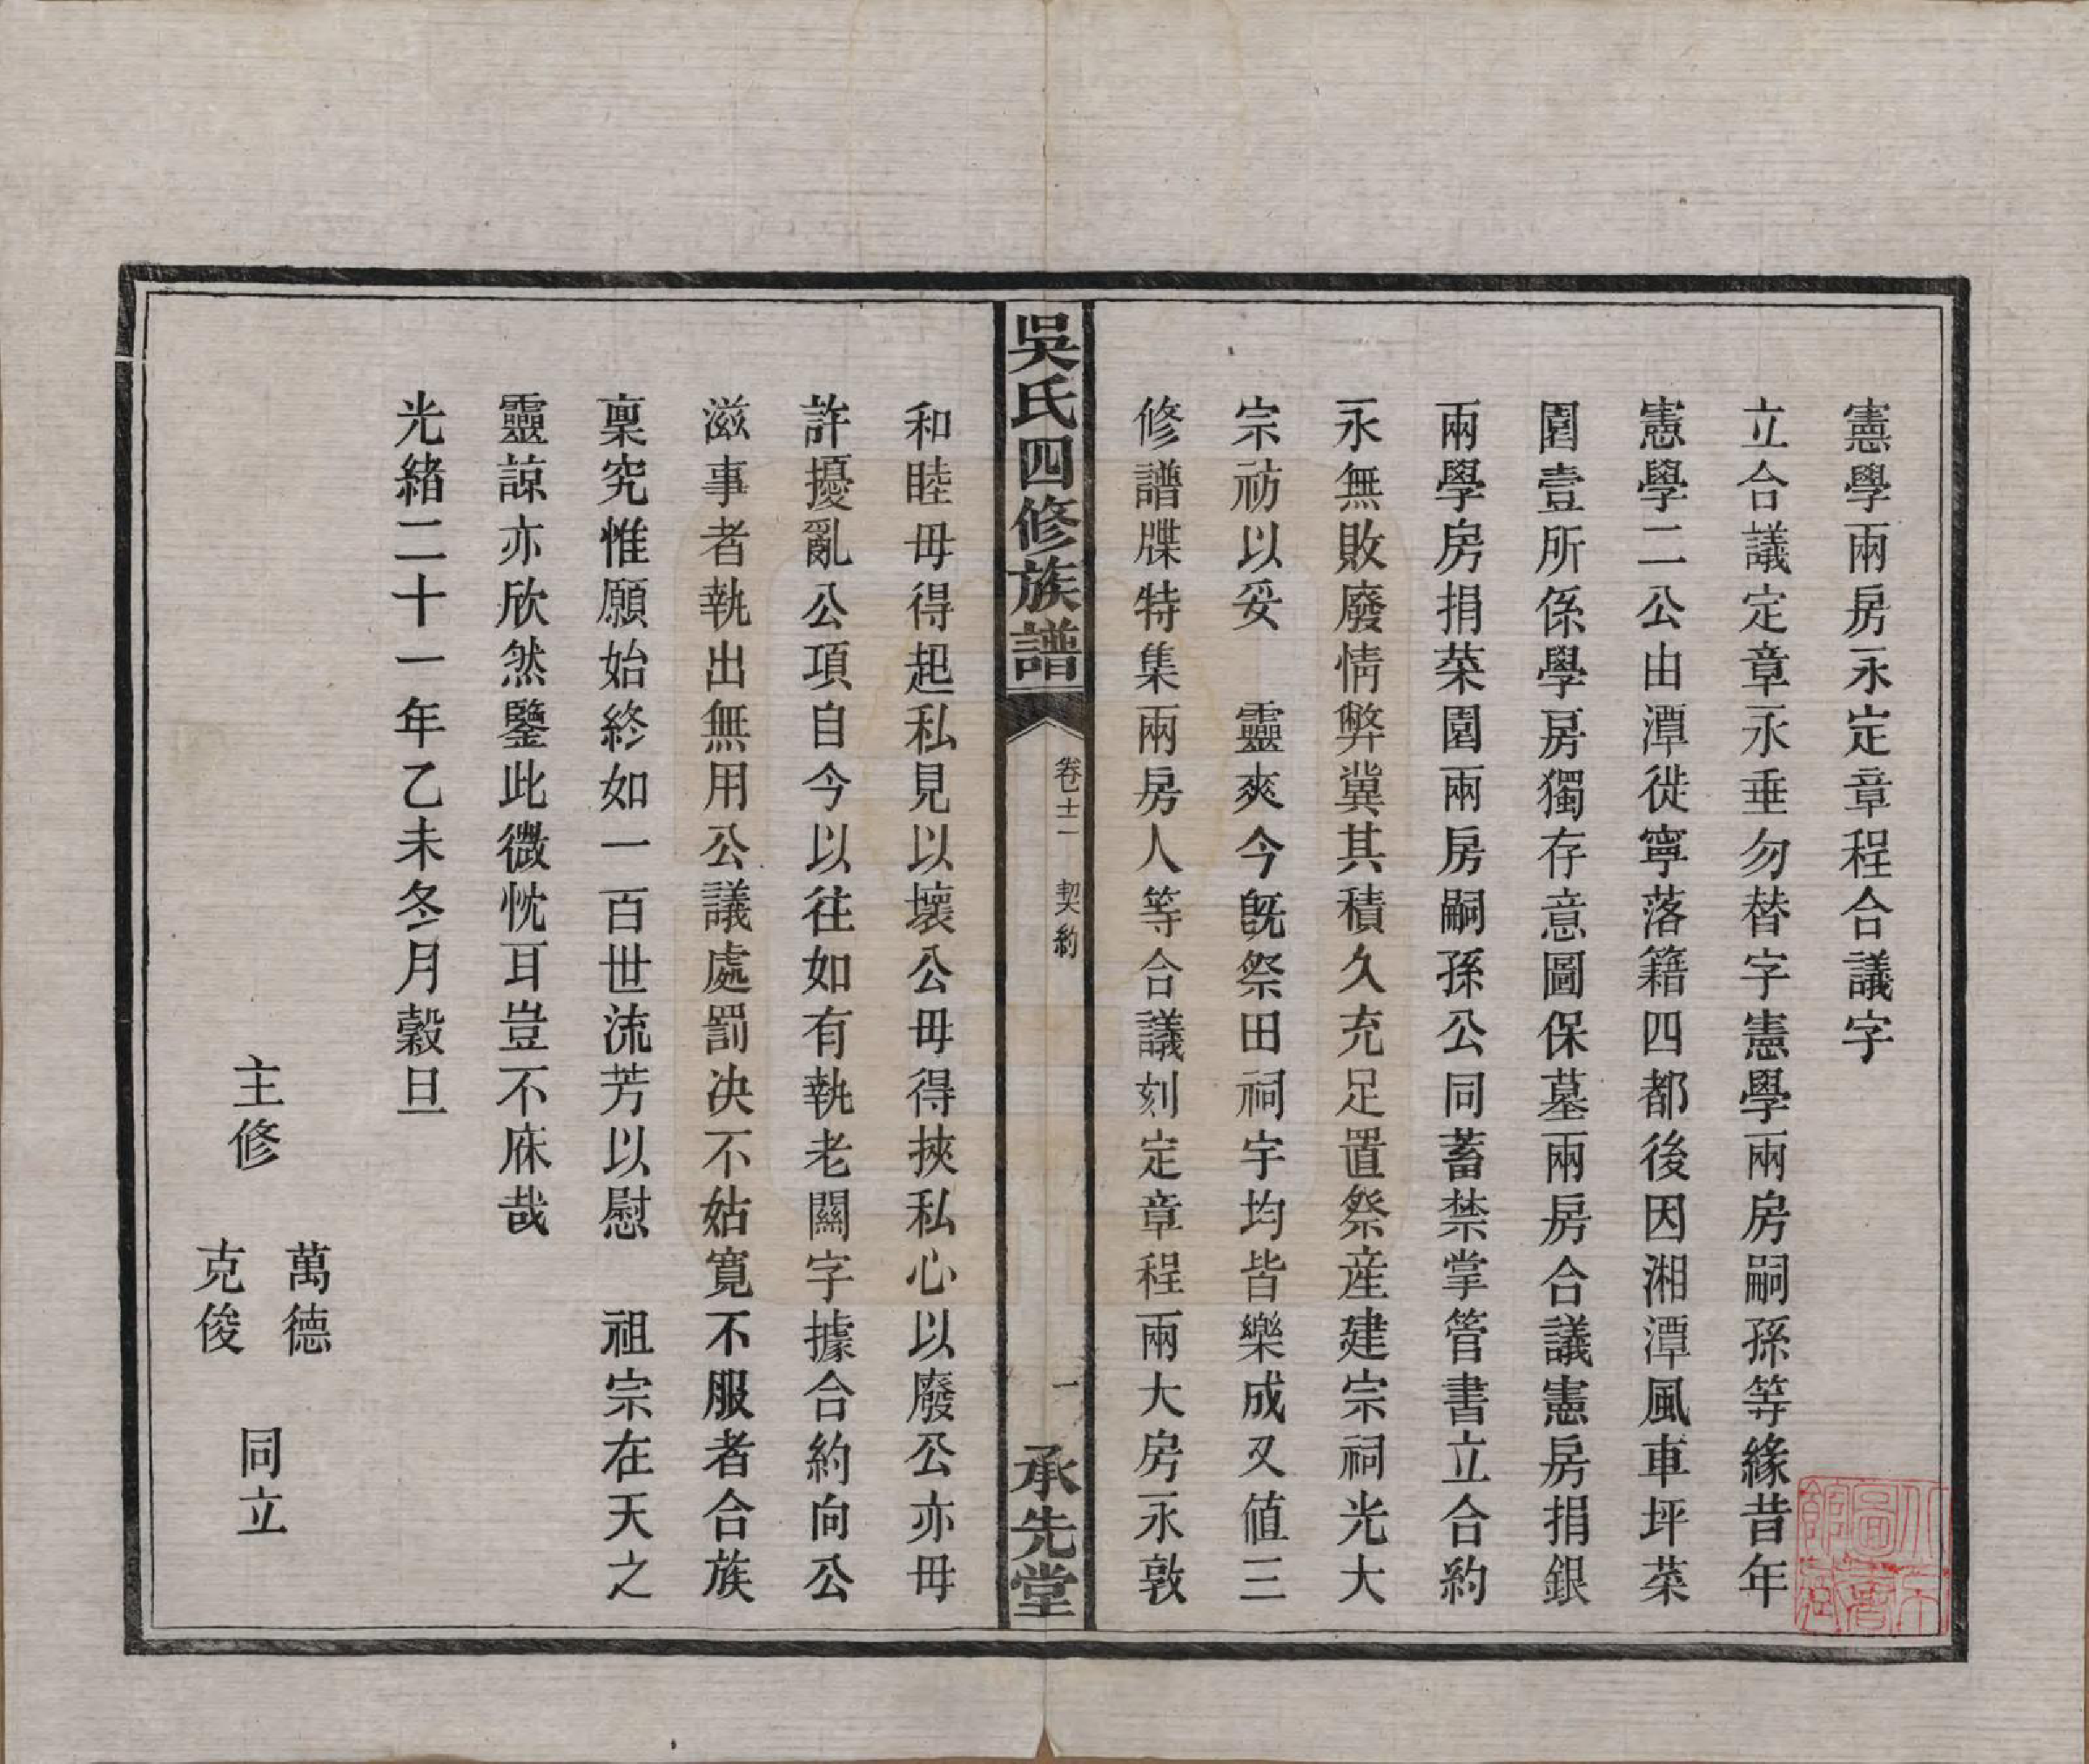 憲學兩房永定章程合議字
立合議定章永垂勿替字憲學兩房嗣孫等緣昔年
憲學二公由潭徙寧落籍四都後因湘潭風車坪菜
園壹所係學房獨存意圖保墓兩房合議憲房捐銀
兩學房捐菜園兩房嗣孫公同蓄禁掌管書立合約
永無敗廢情弊冀其積久充足置祭産建宗祠光大
宗祊以妥　靈爽今既祭田祠宇均皆樂成又值三
修譜牒特集兩房人等合議刻定章程兩大房永敦
吳氏四修族譜
卷十二　契約
一
承先堂
和睦毋得起私見以壞公毋得挾私心以廢公亦毋
許擾亂公項自今以往如有執老鬮字據合約向公
滋事者執出無用公議處罰决不姑寬不服者合族
稟究惟願始終如一百世流芳以慰　祖宗在天之
靈諒亦欣然鑒此微忱耳豈不庥哉
光緒二十一年乙未冬月穀旦
主修　萬德　克俊　同立
北京圖書館藏